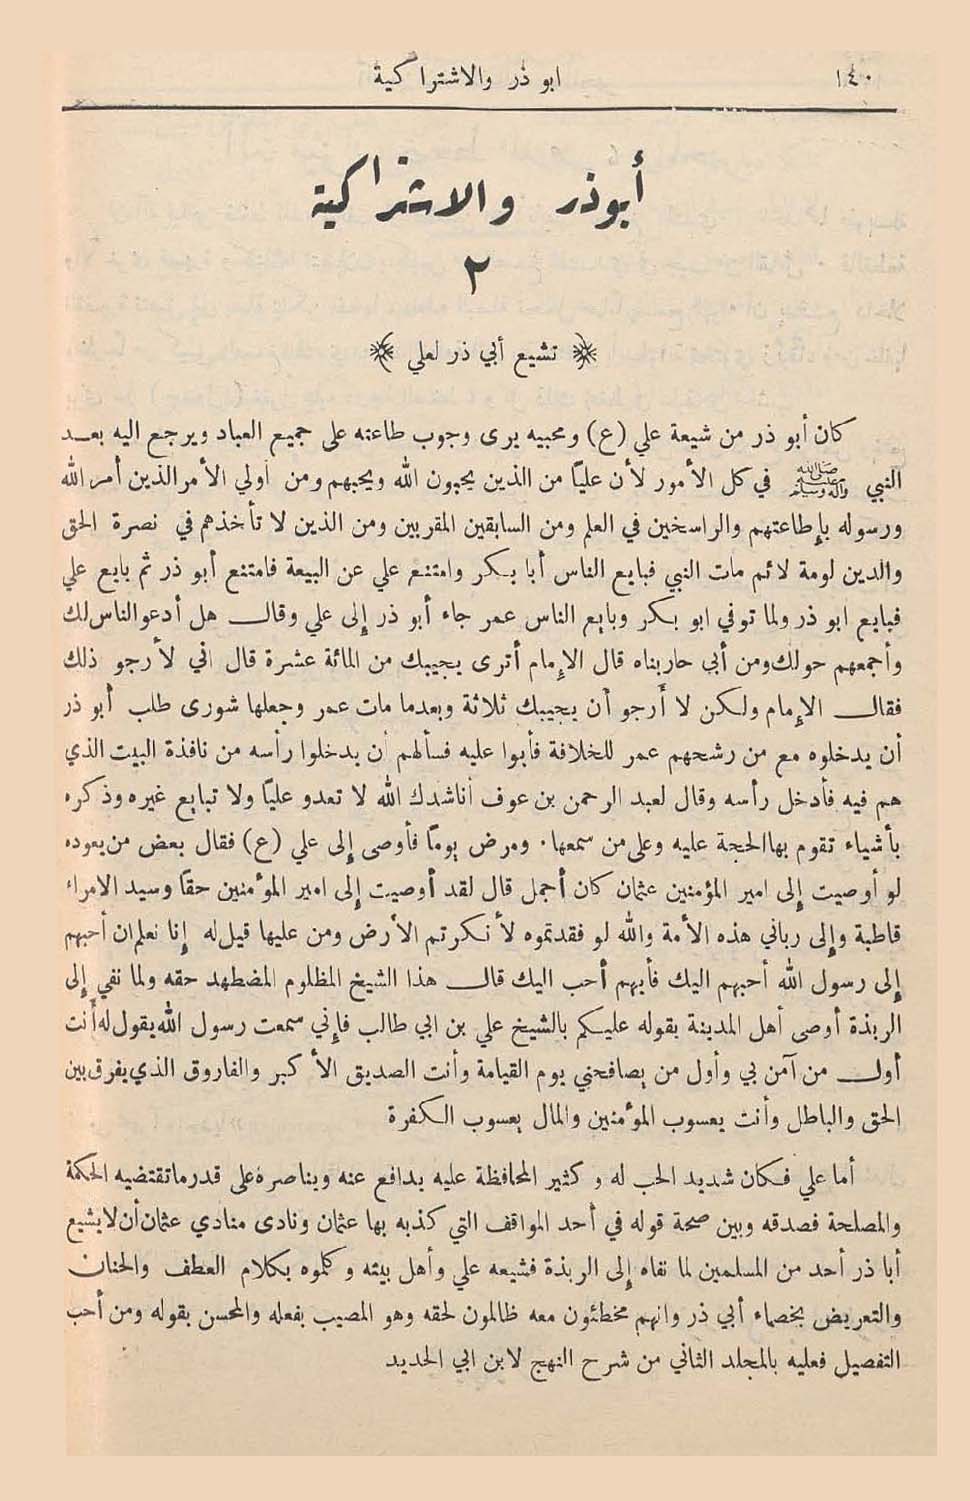 ١٤٠ ابو ذر والاشتراكية
أبوذر والاشتراكية
٢
﴿ تشيع أبي ذر لعلي ﴾
كان أبو ذر من شيعة علي (ع) ومحبيه يرى وجوب طاعته على جميع العباد ويرجع اليه بعد
النبي صلى الله عليه وآله وسلم في كل الأمور لأن عليًا من الذين يحبون الله ويحبهم ومن أولي الأمر الذين أمر الله
ورسوله بإطاعتهم والراسخين في العلم ومن السابقين المقربين ومن الذين لا تأخذهم في نصرة الحق
والدين لومة لائم مات النبي فبايع الناس أبا بكر وامتنع علي عن البيعة فامتنع أبو ذر ثم بايع علي
فبايع ابو ذر ولما توفي ابو بكر وبايع الناس عمر جاء أبو ذر إلى علي وقال هل أدعو الناس لك
وأجمعهم حولك ومن أبى حاربناه قال الإمام أترى يجيبك من المائة عشرة قال اني لأرجو ذلك
فقال الإمام ولكن لا أرجو أن يجيبك ثلاثة وبعدما مات عمر وجعلها شورى طلب أبو ذر
أن يدخلوه مع من رشحهم عمر للخلافة فأبوا عليه فسألهم أن يدخلوا رأسه من نافذة البيت الذي
هم فيه فأدخل رأسه وقال لعبد الرحمن بن عوف أناشدك الله لا تعدو عليًا ولا تبايع غيره وذكره
بأشياء تقوم بها الحجة عليه وعلى من سمعها . ومرض يومًا فأوصى إلى علي (ع) فقال بعض من يعوده
لو أوصيت إلى امير المؤمنين عثمان كان أجمل قال لقد أوصيت إلى امير المؤمنين حقًا وسيد الامراء
قاطبة وإلى رباني هذه الأمة والله لو فقدتموه لأنكرتم الأرض ومن عليها قيل له إنا نعلم ان أحبهم
إلى رسول الله أحبهم اليك فأيهم أحب اليك قال هذا الشيخ المظلوم المضطهد حقه ولما نفي إلى
الربذة أوصى أهل المدينة بقوله عليكم بالشيخ علي بن ابي طالب فإني سمعت رسول الله يقول له أنت
أول من آمن بي وأول من يصافحني يوم القيامة وأنت الصديق الأكبر والفاروق الذي يفرق بين
الحق والباطل وأنت يعسوب المؤمنين والمال يعسوب الكفرة
أما علي فكان شديد الحب له وكثير المحافظة عليه يدافع عنه ويناصره على قدر ما تقتضيه الحكمة
والمصلحة فصدقه وبين صحة قوله في أحد المواقف التي كذبه بها عثمان ونادى منادي عثمان أن لا يشيع
أبا ذر أحد من المسلمين لما نفاه إلى الربذة فشيعه علي وأهل بيته وكلموه بكلام العطف والحنان
والتعريض بخصماء أبي ذر وانهم مخطئون معه ظالمون لحقه وهو المصيب بفعله والمحسن بقوله ومن أحب
التفصيل فعليه بالمجلد الثاني من شرح النهج لابن ابي الحديد